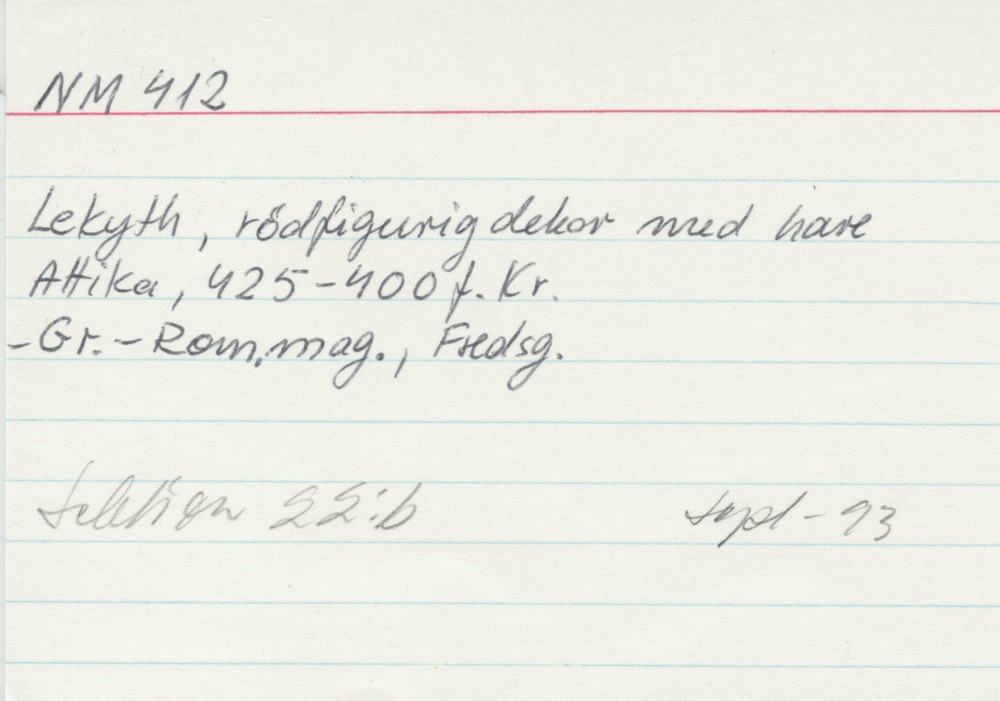 NM 412
Lekyth, rödfigurig dekor med hare
Attika, 425-400 f. Kr.
-Gr.-Rom.mag., Fredsg.
Sektion 22:b Sept-93